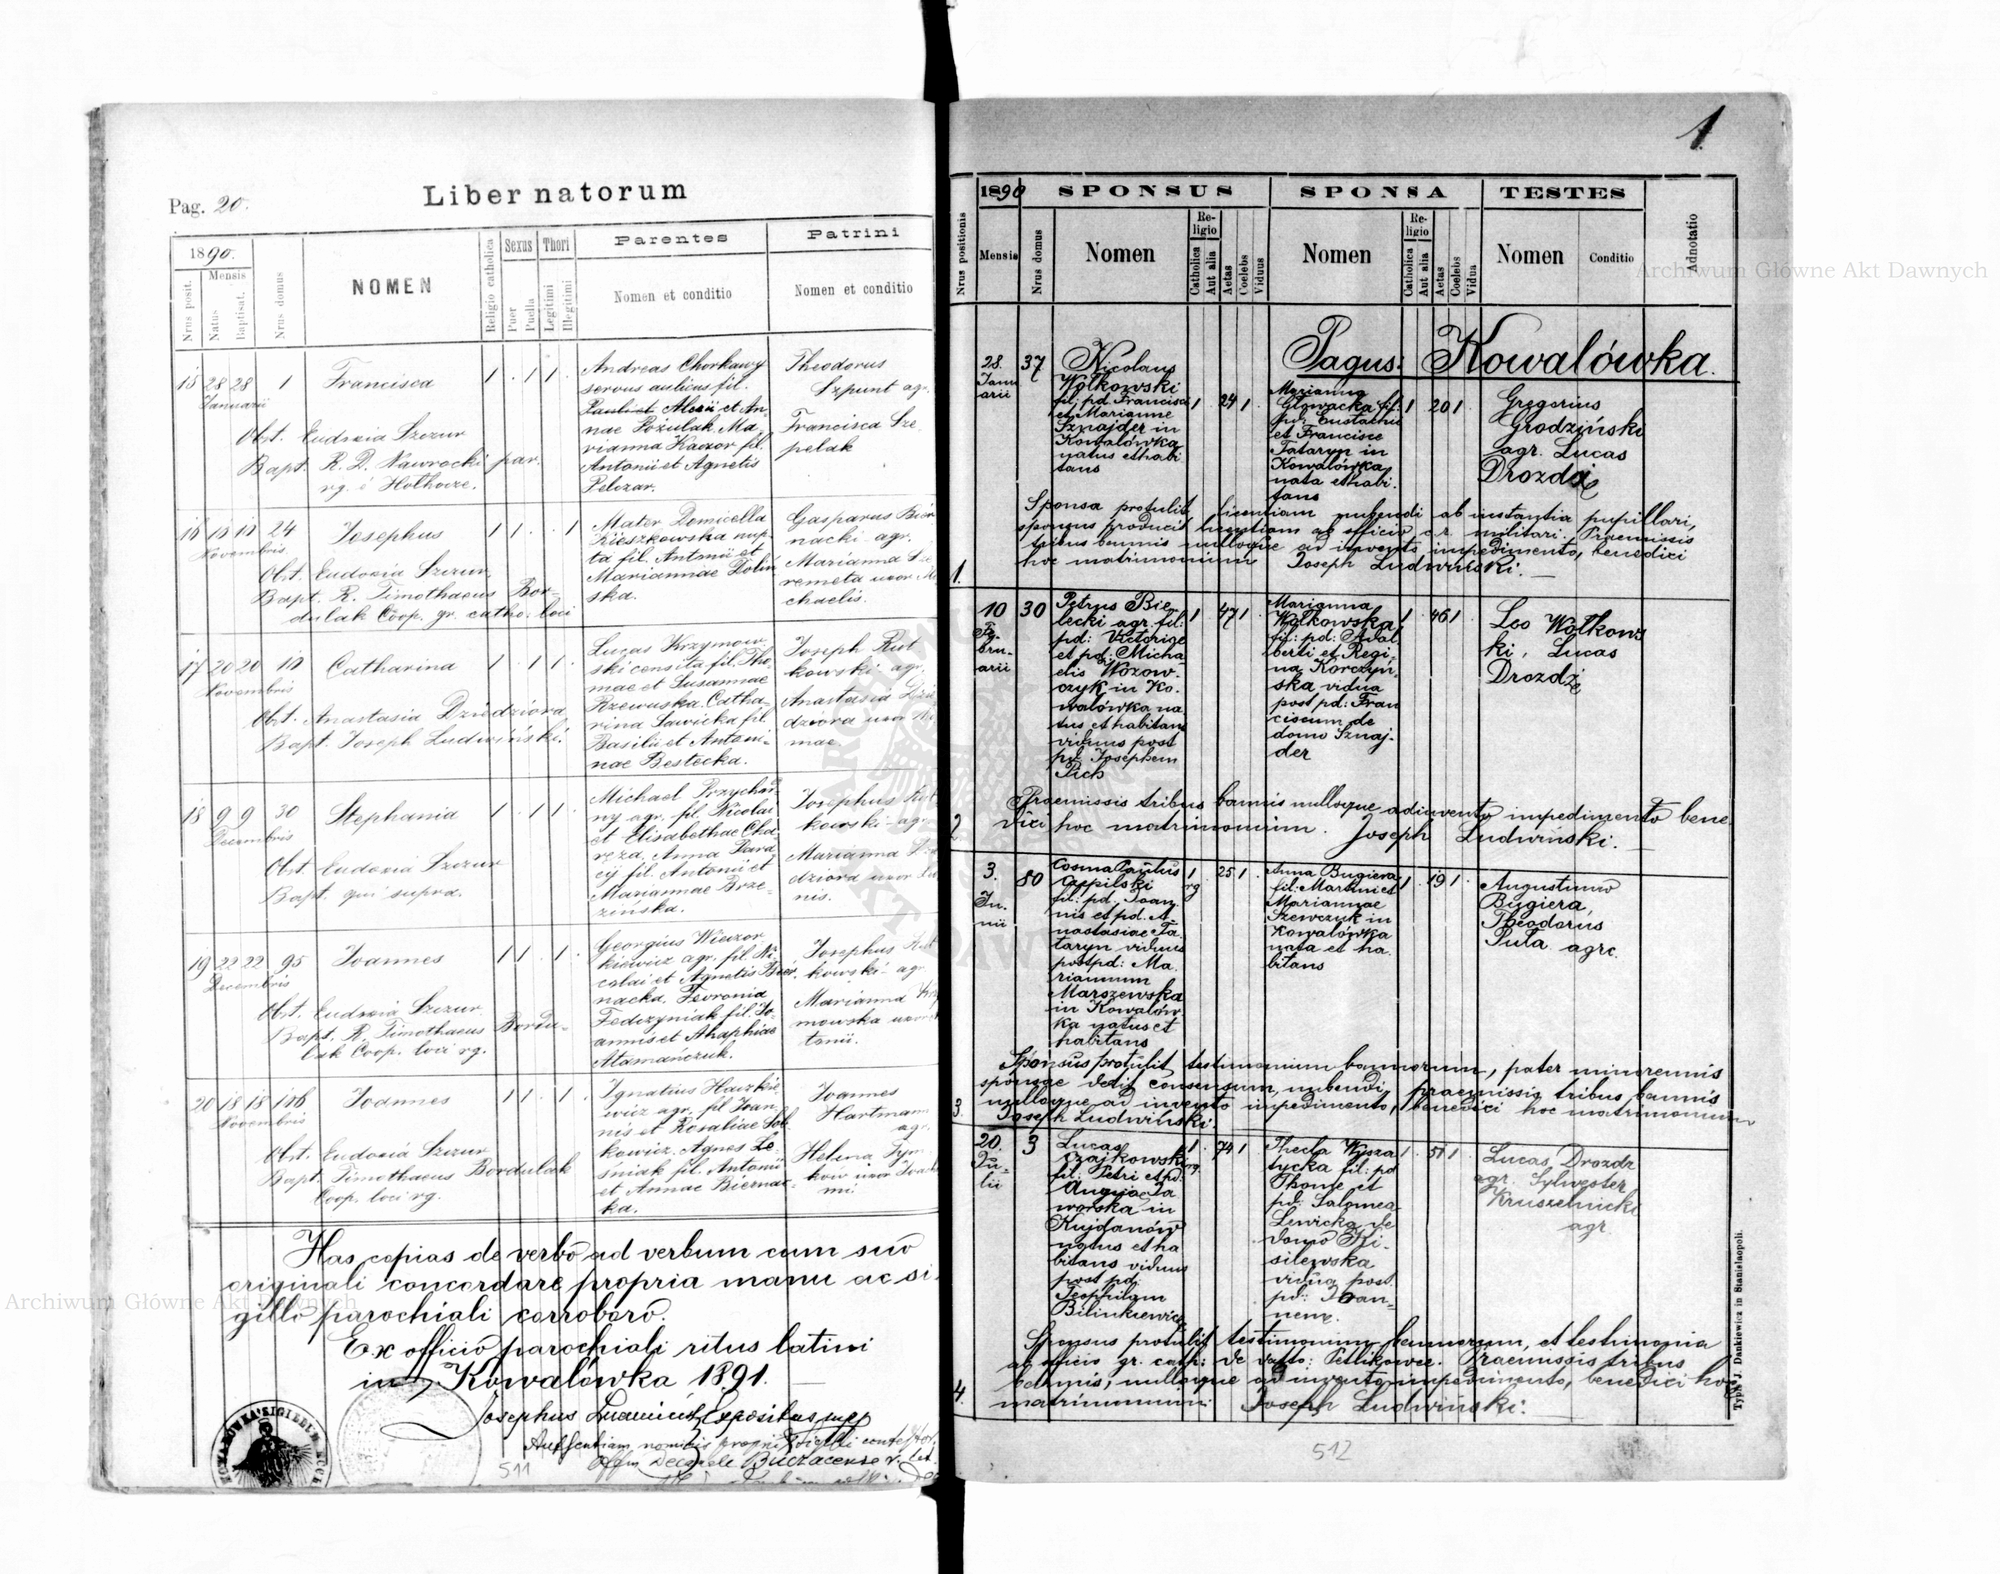 Pag. 20.
Liber natorum
1890.
Nrus posit.
Mensis
Natus
Baptisat.
Nrus domus
NOMEN
Religio catholica
Sexus
Puer
Puella
Thori
Legitimi
Illegitimi
Parentes
Nomen et conditio
Patrini
Nomen et conditio
15 28 28 1 Francisca 1 . 1 1 .
Januarii
Obst. Eudoxia Szczur
Bapt. R. D. Nawrocki par.
rg. é Hołhocze.
Andreas Chorkawy
servus aulicus fil.
Pauli et Alexii et An-
nae Pożulak. Ma-
rianna Kaczor fil.
Antonii et Agnetis
Pelczar.
Theodorus
Szpunt agr.
Francisca Sze-
pelak
16 15 17 24 Josephus 1 1 . . 1
Novembris
Obst. Eudoxia Szczur
Bapt. R. Timothaeus Bor-
dulak Coop. gr. catho. loci
Mater Domicella
Rzeszkowska nup-
ta fil. Antonii et
Mariannae Doliń
ska.
Gasparus Bier
nacki agr.
Marianna Sze
remeta uxor Mi
chaelis.
17 20 20 10 Catharina 1 . 1 1 .
Novembris
Obst. Anastasia Dziedziora
Bapt. Joseph Ludwiński.
Lucas Krzymow-
ski censita fil. Tho-
mae et Susannae
Rzewuska. Catha-
rina Sawicka fil.
Basilii et Antoni-
nae Bestecka.
Joseph Rut
kowski agr.
Anastasia Dzie
dziora uxor
mae.
18 9 9 30 Stephania 1 . 1 1 .
Decembris
Obst. Eudoxia Szczur
Bapt. qui supra.
Michael Przychod-
ny agr. fil. Nicolai
et Elisabethae Cha
reza, Anna Parad
cij fil. Antonii et
Mariannae Brze-
zińska.
Josephus Rut
kowski agr.
Marianna
dziora uxor
nis.
19 22 22 95 Joannes 1 1 . 1 .
Decembris
Obst. Eudoxia Szczur
Bapt. R. Timothaeus Bordu-
lak Coop. loci rg.
Georgius Wieczor
kiewicz agr. fil. Ni-
colai et Agnetis Bier-
nacka, Fevronia
Fedczyniak fil. Jo-
annis et Ahaphiae
Atamańczuk.
Josephus Rut
kowski agr.
Marianna Krzy
mowska uxor
tonii.
20 18 18 146 Joannes 1 1 . 1 .
Novembris
Obst. Eudoxia Szczur
Bapt. Timothaeus Bordulak
Coop. loci rg.
Ignatius Haczkie
wicz agr. fil. Joan-
nis et Rosaliae Sob-
kowicz. Agnes Le-
śniak fil. Antonii
et Annae Biernac-
ka.
Joannes
Hartman
agr.
Helena Tym
ków uxor
mi.
Has copias de verbo ad verbum cum suo
originali concordare propria manu ac si-
gillo parochiali corroboro.
Ex officio parochiali ritus latini
in Kowalówka 1891.
Josephus Ludwiński Expositus mpp
Buczacense
511
1
1890
Nrus positionis
Mensis
Nrus domus
SPONSUS
Nomen
Re-
ligio
Catholica
Aut alia
Aetas
Coelebs
Viduus
SPONSA
Nomen
Re-
ligio
Catholica
Aut alia
Aetas
Coelebs
Vidua
TESTES
Nomen
Conditio
Adnotatio
Pagus: Kowalówka.
28.
Janu
arii
37
Nicolaus
Wołkowski
fil: pd. Francisci
et Marianne
Sznajder in
Kowalówka
natus et habi
tans
1 . 24 1 .
Marianna
Głowacka fil:
pd: Eustachii
et Francisce
Tataryn in
Kowalówka
nata et habi.
tans
1 20 1 .
Gregorius
Grodziński
agr. Lucas
Drozdź
Sponsa protulit licentiam nubendi ab instantia pupillari,
sponsus producit licentiam ab officio c.r. militari. Praemissis
tribus bannis nulloque ad invento impedimento, benedixi
hoc matrimonium Joseph Ludwiński.
1.
10
Fe-
bru-
arii
30
Petrus Bie-
lecki agr. fil:
pd: Victorige
et pd: Micha
elis Wozow-
czyk in Ko-
walówka na
tus et habitans
viduus post
pd. Josephem
Pich
1 . 47 1 .
Marianna
Wołkowska
fil: pd: Adal
berti et Regi-
na Korczyń-
ska vidua
post pd: Fran
ciscum de
domo Sznaj-
der
1 . 46 1 .
Leo Wołkows
ki, Lucas
Drozdź
Praemissis tribus bannis nulloque adinvento impedimento bene-
dixi hoc matrimonium. Joseph Ludwiński.
2.
3.
Ju-
nii
80
Cosma Paulus
Cappilski
fil: pd. Joan-
nis et pd. A-
nastasiae Ta-
taryn viduus
post pd: Ma-
riannum
Marszewska
in Kowalów-
ka natus et
habitans
1 rg . 25 1 .
Anna Bugiera
fil: Martini et
Mariannae
Szewczuk in
Kowalówka
nata et ha-
bitans
1 . 19 1 .
Augustinus
Bugiera,
Theodorus
Puła agrc.
Sponsus protulit testimonium bannorum, pater minorennis
sponsae dedit consensum nubendi, praemissis tribus bannis
nulloque ad invento impedimento, benedixi hoc matrimonium
Joseph Ludwiński.
3.
20.
Ju-
lii
3
Lucas
Czajkowski
fil: Petri et pd:
Ja
worska in
Kujdanów
natus et ha
bitans viduus
post pd:
Teophilam
Bilinkiewicz
1 rg. 74 1
Thecla Wysza
tycka fil: pd
Thome et
pd: Salomea
Lewicka de
domo Ki-
silewska
vidua post
pd: Joan-
nem.
1 . 51 1
Lucas Drozdz
agr. Sylwester
Kruszelnicki
agr
Sponsus protulit testimonium bannorum, et testimonia
ab officio gr. cath: de datto: Petlikowce. Praemissis tribus
bannis, nulloque ad invento impedimento, benedixi hoc
matrimonium Joseph Ludwiński.
4.
Typis J. Dankiewicz in Stanislaopoli.
512
Archiwum Główne Akt Dawnych
Archiwum Główne Akt Dawnych